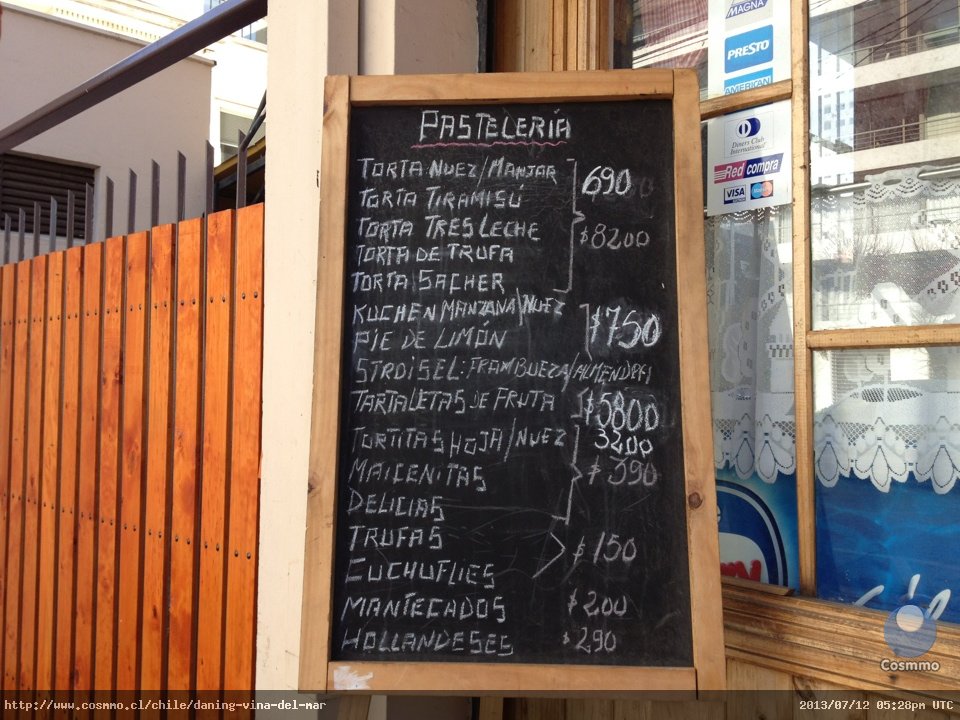 MAGNA
PRESTO
AMERICAN
Diners Club
International
Redcompra
VISA
PASTELERÍA
TORTA NUEZ/MANJAR 690
TORTA TIRAMISÚ
TORTA TRES LECHE $8200
TORTA DE TRUFA
TORTA SACHER
KUCHEN MANZANA/NUEZ
PIE DE LIMÓN $750
STROISEL: FRAMBUEZA/ALMENDRA
TARTALETAS DE FRUTA $5800
3200
TORTITAS HOJA/NUEZ
MAICENITAS $390
DELICIAS
TRUFAS $150
CUCHUFLIES
MANTECADOS $200
HOLLANDESES $290
Cosmmo
http://www.cosmmo.cl/chile/daning-vina-del-mar 2013/07/12 05:28pm UTC